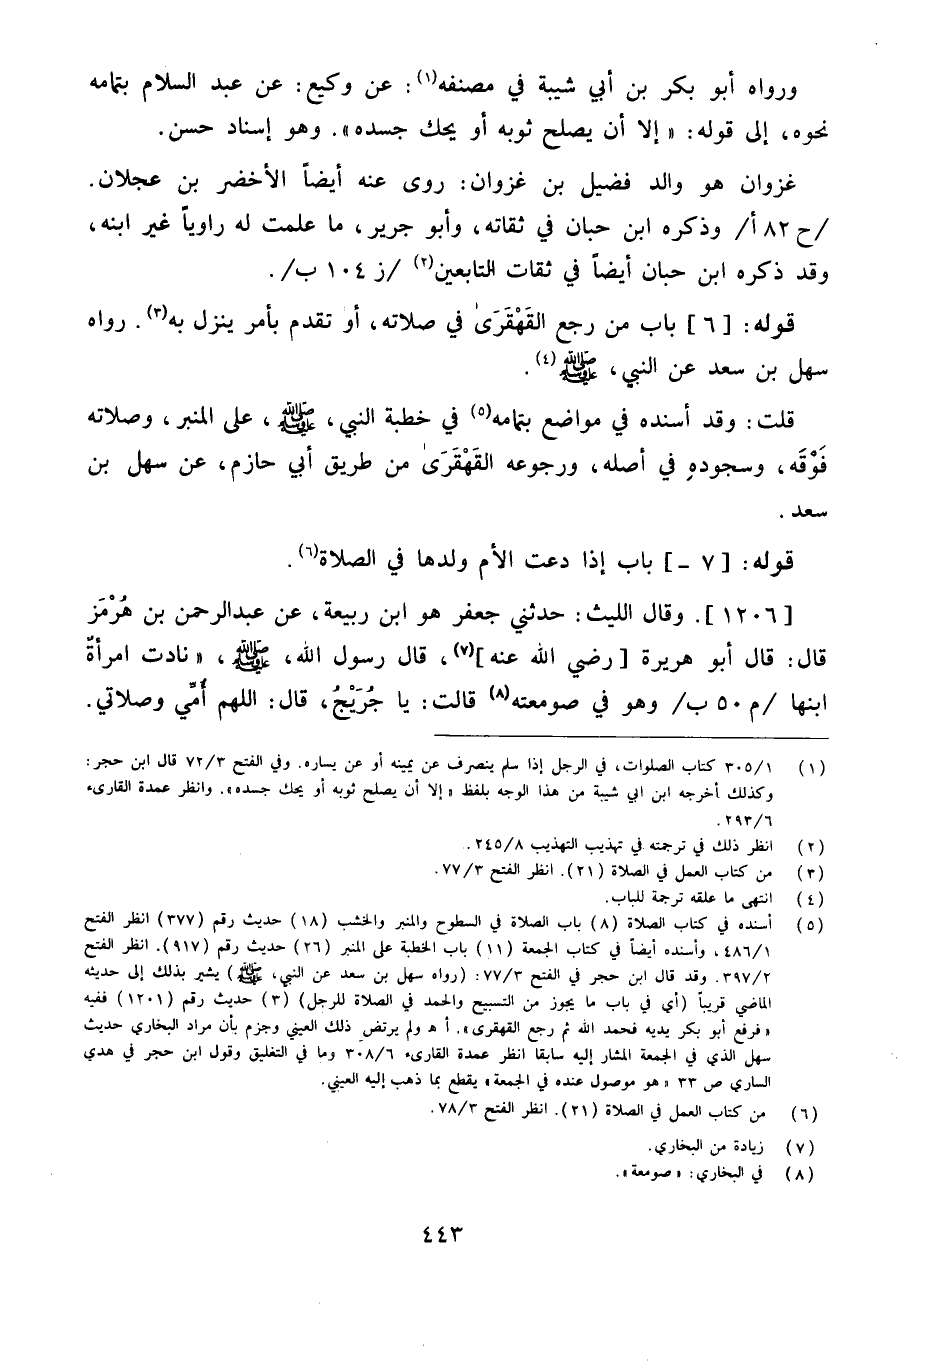 ورواه أبو بكر بن أبي شيبة في مصنفه(١): عن وكيع: عن عبد السلام بتمامه
نحوه، إلى قوله: « إلا أن يصلح ثوبه أو يحك جسده». وهو إسناد حسن.
غزوان هو والد فضيل بن غزوان: روى عنه أيضاً الأخضر بن عجلان.
/ح ٨٢ أ/ وذكره ابن حبان في ثقاته، وأبو جرير، ما علمت له راوياً غير ابنه،
وقد ذكره ابن حبان أيضاً في ثقات التابعين(٢) /ز ١٠٤ ب/.
قوله: [٦] باب من رجع القَهْقَرَىٰ في صلاته، أو تقدم بأمر ينزل به(٣). رواه
سهل بن سعد عن النبي، ﷺ(٤).
قلت: وقد أسنده في مواضع بتمامه(٥) في خطبة النبي، ﷺ، على المنبر، وصلاته
فَوْقَه، وسجودهِ في أصله، ورجوعه القَهْقَرَىٰ من طريق أبي حازم، عن سهل بن
سعد.
قوله: [٧ -] باب إذا دعت الأم ولدها في الصلاة(٦).
[١٢٠٦]. وقال الليث: حدثني جعفر هو ابن ربيعة، عن عبدالرحمن بن هُرْمَز
قال: قال أبو هريرة [رضي الله عنه](٧)، قال رسول الله، ﷺ، « نادت امرأةٌ
ابنها /م ٥٠ ب/ وهو في صومعته(٨) قالت: يا جُرَيْجُ، قال: اللهم أُمِّي وصلاتي.
(١) ٣٠٥/١ كتاب الصلوات، في الرجل إذا سلم ينصرف عن يمينه أو عن يساره. وفي الفتح ٧٢/٣ قال ابن حجر:
وكذلك أخرجه ابن ابي شيبة من هذا الوجه بلفظ « إلا أن يصلح ثوبه أو يحك جسده». وانظر عمدة القارىء
٢٩٣/٦.
(٢) انظر ذلك في ترجمته في تهذيب التهذيب ٢٤٥/٨.
(٣) من كتاب العمل في الصلاة (٢١). انظر الفتح ٧٧/٣.
(٤) انتهى ما علقه ترجمة للباب.
(٥) أسنده في كتاب الصلاة (٨) باب الصلاة في السطوح والمنبر والخشب (١٨) حديث رقم (٣٧٧) انظر الفتح
٤٨٦/١، وأسنده أيضاً في كتاب الجمعة (١١) باب الخطبة على المنبر (٢٦) حديث رقم (٩١٧). انظر الفتح
٣٩٧/٢. وقد قال ابن حجر في الفتح ٧٧/٣: (رواه سهل بن سعد عن النبي، ﷺ) يشير بذلك إلى حديثه
الماضي قريباً (أي في باب ما يجوز من التسبيح والحمد في الصلاة للرجل) (٣) حديث رقم (١٢٠١) ففيه
« فرفع أبو بكر يديه فحمد الله ثم رجع القهقرى». أ هـ ولم يرتض ذلك العيني وجزم بأن مراد البخاري حديث
سهل الذي في الجمعة المشار إليه سابقا انظر عمدة القارىء ٣٠٨/٦ وما في التغليق وقول ابن حجر في هدي
الساري ص ٣٣ « هو موصول عنده في الجمعة» يقطع بما ذهب إليه العيني.
(٦) من كتاب العمل في الصلاة (٢١). انظر الفتح ٧٨/٣.
(٧) زيادة من البخاري.
(٨) في البخاري: « صومعة».
٤٤٣